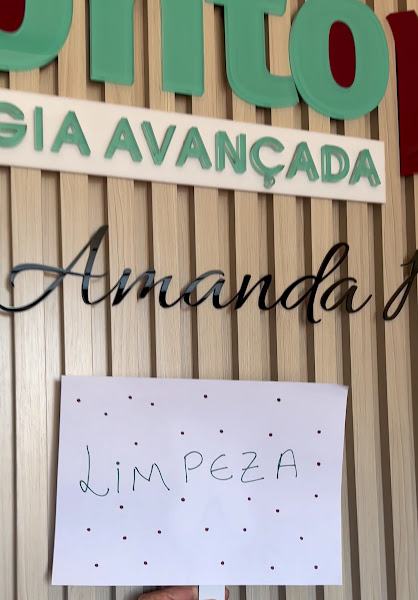 GIA AVANÇADA
Amanda
LIMPEZA